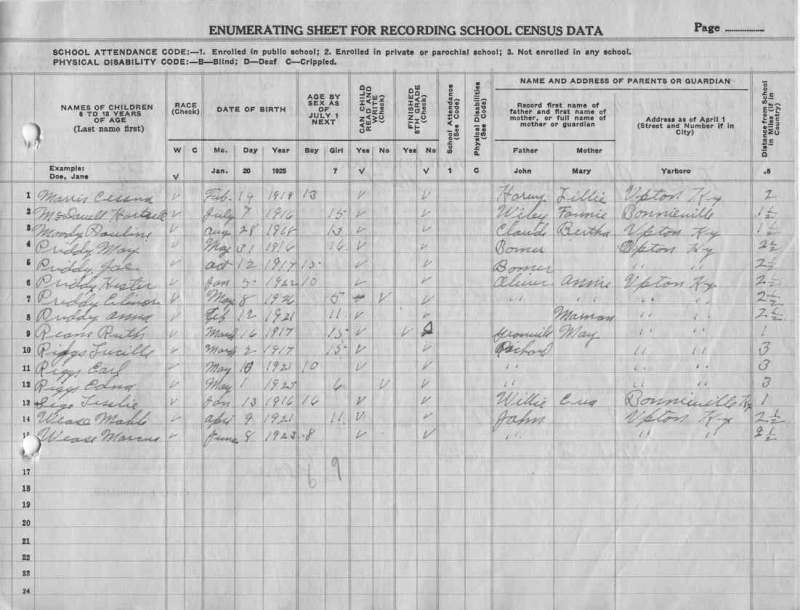 ENUMERATING SHEET FOR RECORDING SCHOOL CENSUS DATA Page
SCHOOL ATTENDANCE CODE:—1. Enrolled in public school; 2. Enrolled in private or parochial school; 3. Not enrolled in any school.
PHYSICAL DISABILITY CODE:—B—Blind; D—Deaf C—Crippled.
NAMES OF CHILDREN 6 TO 18 YEARS OF AGE (Last name first)
RACE (Check)
DATE OF BIRTH
AGE BY SEX AS OF JULY 1 NEXT
CAN CHILD READ AND WRITE (Check)
FINISHED 8TH GRADE (Check)
School Attendance (See Code)
Physical Disabilities (See Code)
NAME AND ADDRESS OF PARENTS OR GUARDIAN
Record first name of father and first name of mother, or full name of mother or guardian
Address as of April 1 (Street and Number if in City)
Distance from School in Miles (if in Country)
W C Mo. Day Year Boy Girl Yes No Yes No Father Mother
Example: Doe, Jane V Jan. 20 1925 7 V V 1 C John Mary Yarboro .5
1 Cessna V Feb. 19 13 V V Lillie Upton Ky 2
2 V July 7 1916 15 V V Wiley Fannie Bonnieville 1½
3 Moody Pauline V Aug 28 13 V V Claud Bertha Upton Ky 1½
4 Priddy May V May 31 1916 14 V V Upton Ky 2½
5 Priddy V Oct 12 1917 V V " " 2½
6 Priddy V Jan 5 1922 10 V V Annie Upton Ky 2½
7 Priddy V May 8 1926 5 V V " " " " 2½
8 Priddy Anna V Feb 12 1921 11 V V " " 2½
9 Ruth V March 16 1917 15 V V May " " 1
10 Riggs Lucille V March 2 1917 15 V V " " 3
11 Riggs Earl V May 1921 10 V V " " " 3
12 Riggs Edna V May 1 1925 6 V V " " " 3
13 Leslie V Jan 13 1916 16 V V Willie Bonnieville Ky 1
14 Wease V April 9 1921 11 V V John Upton Ky 2½
Wease Marcus V June 8 1923 8 V V " " " 2½
17
18 6 9
19
20
21
22
23
24